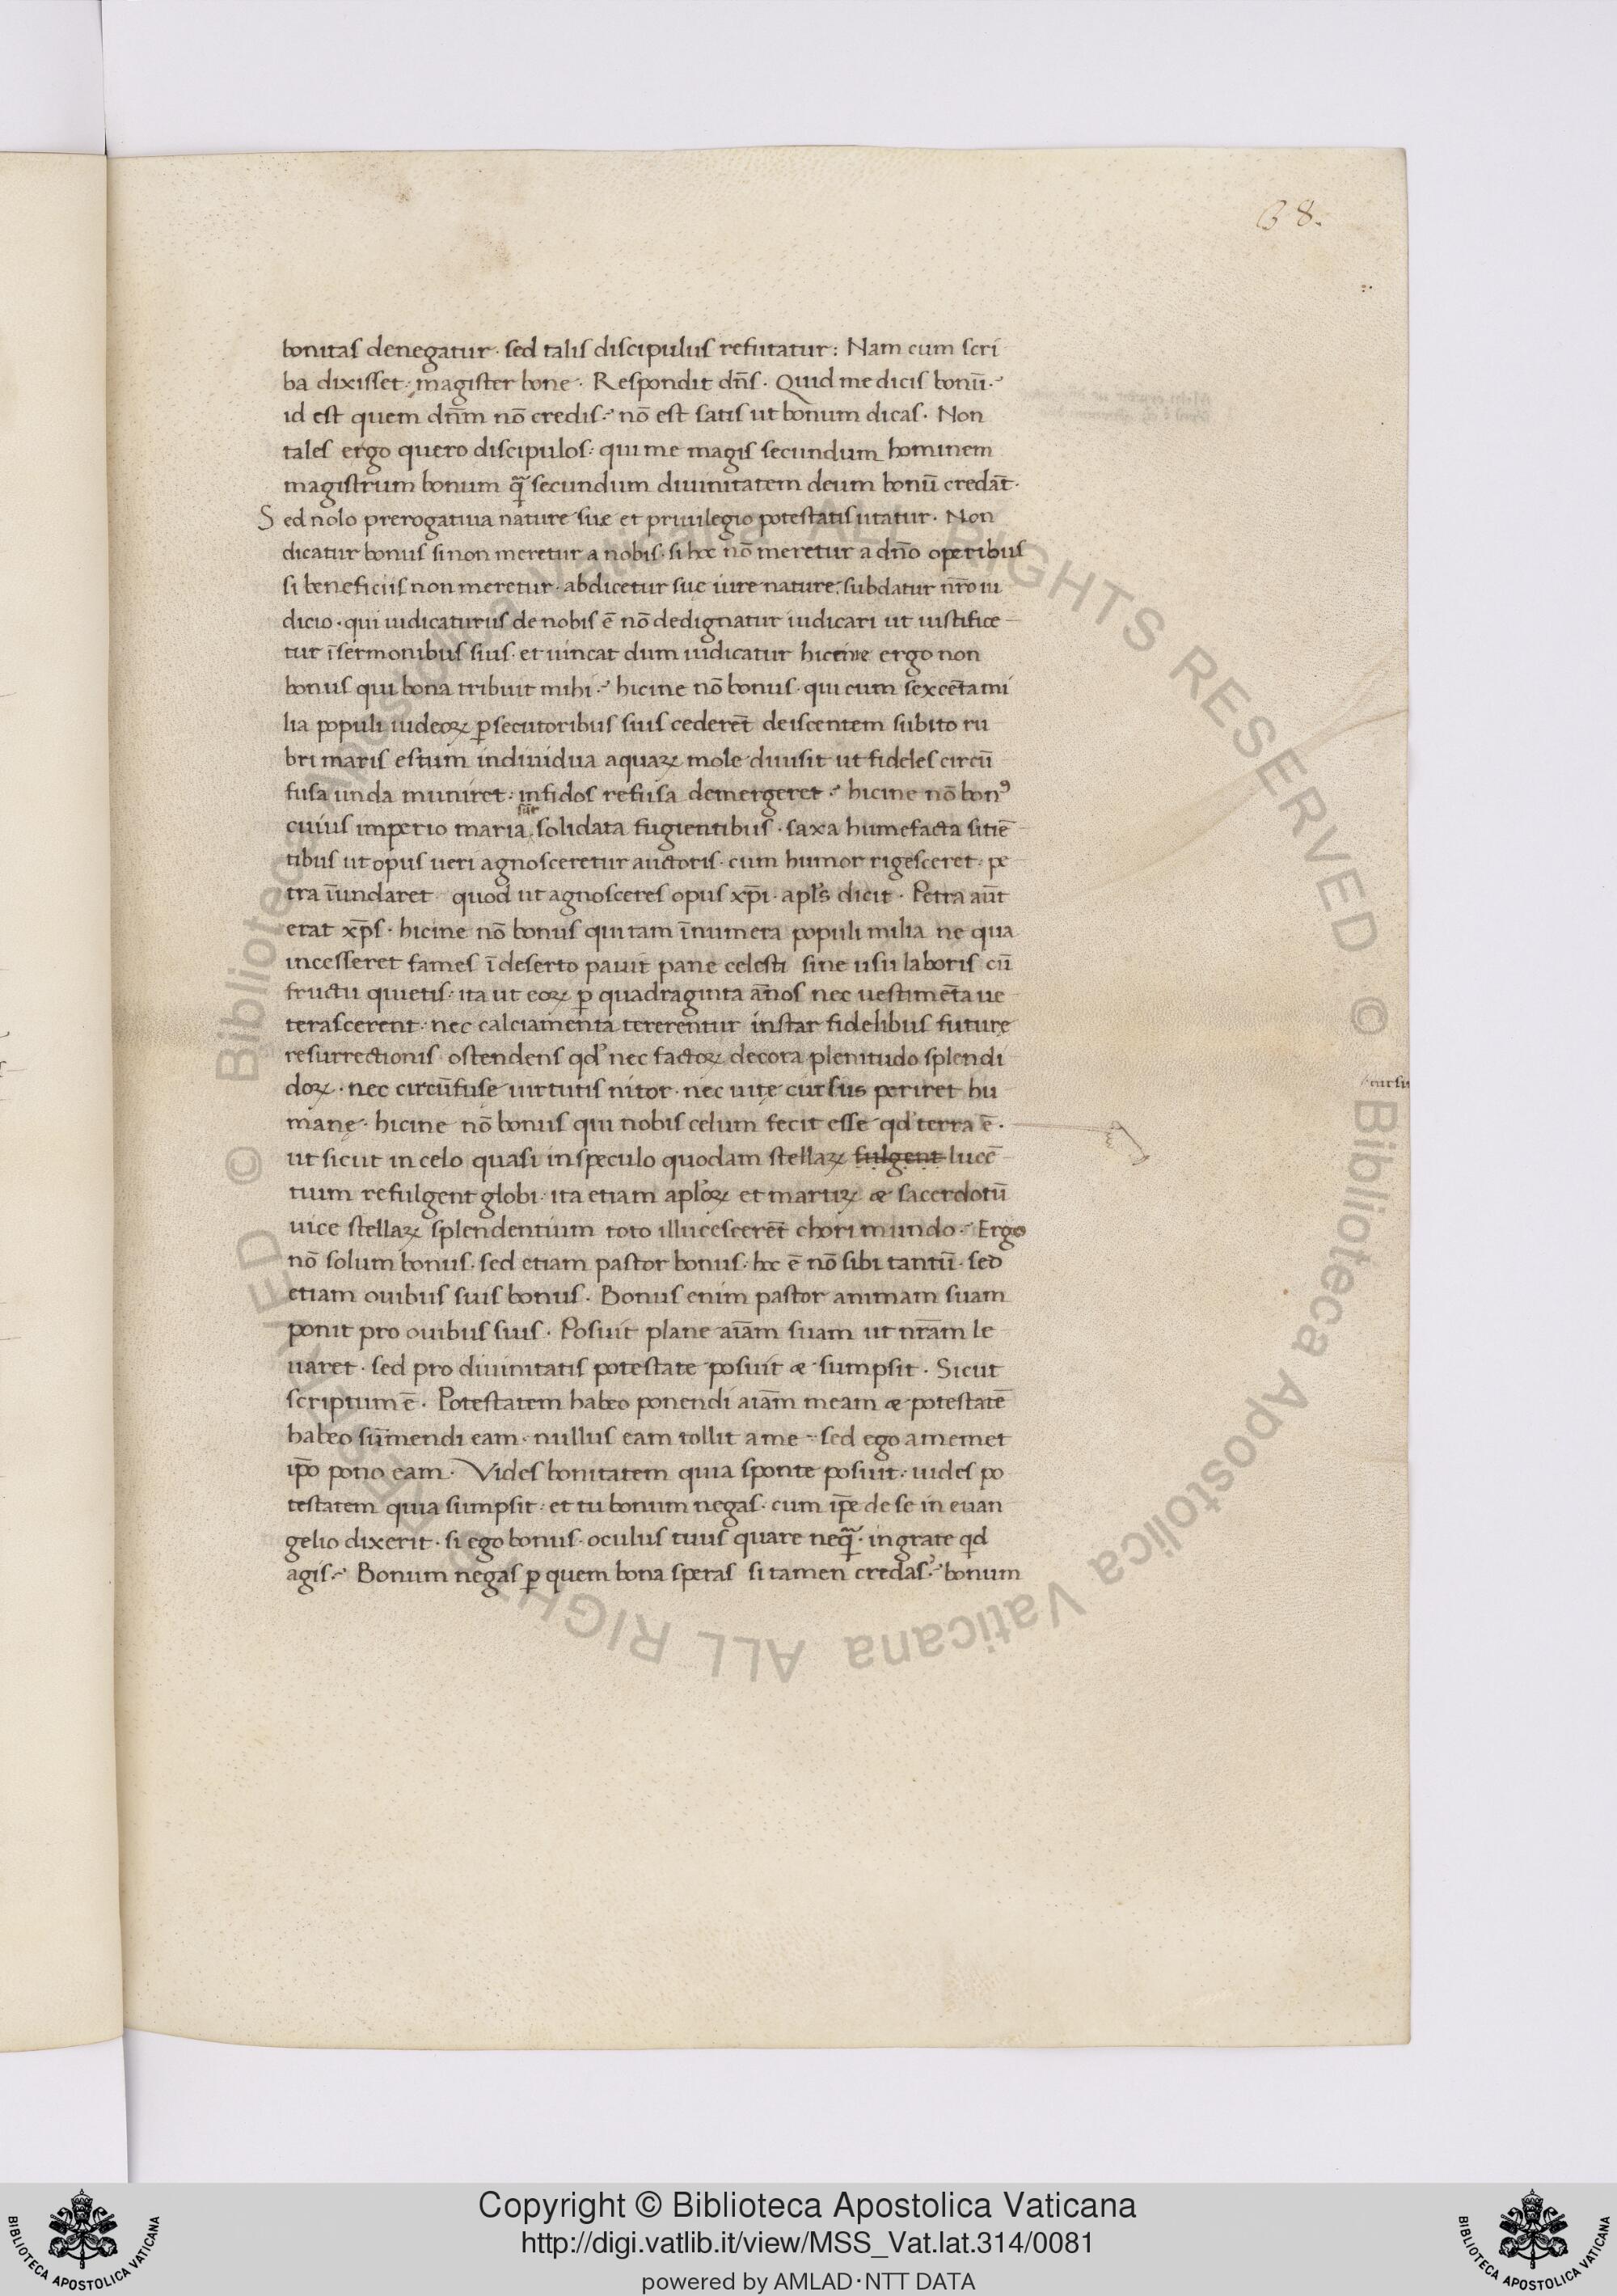 38.
bonitas denegatur · sed talis discipulus refutatur : Nam cum scri
ba dixisset : magister bone · Respondit dn̄s · Quid me dicis bonū ·
id est quem dn̄m nō credis · nō est satis ut bonum dicas · Non
tales ergo quero discipulos : qui me magis secundum hominem
magistrum bonum q̄ secundum diuinitatem deum bonū credāt ·
Sed nolo prerogatiua nature sue et priuilegio potestatis utatur · Non
dicatur bonus si non meretur a nobis · si hoc nō meretur a dn̄o operibus
si beneficiis non meretur · abdicetur sue iure nature : subdatur nr̄o iu
dicio · qui iudicaturus de nobis ē nō dedignatur iudicari ut iustifice
tur ī sermonibus suis · et uincat dum iudicatur hicine ergo non
bonus qui bona tribuit mihi · hicine nō bonus · qui cum sexcēta mi
lia populi iudeoꝝ ꝑsecutoribus suis cederēt deiscentem subito ru
bri maris estum indiuidua aquaꝝ mole diuisit ut fideles circū
fusa unda muniret : infidos refusa demergeret · hicine nō bonꝰ
cuius imperio maria sūt solidata fugientibus · saxa humefacta sitiē
tibus ut opus ueri agnosceretur auctoris · cum humor rigesceret · pe
tra īundaret quod ut agnosceres opus xp̄i · apl̄s dicit · Petra aūt
erat xp̄s · hicine nō bonus qui tam īnumera populi milia ne qua
incesseret fames ī deserto pauit pane celesti sine usu laboris cū
fructu quietis · ita ut eoꝝ ꝑ quadraginta an̄os nec uestimēta ue
terascerent · nec calciamenta tererentur instar fidelibus future
resurrectionis ostendens qd' nec factoꝝ decora plenitudo splendi
doꝝ · nec circūfuse uirtutis nitor · nec uitę cursus periret hu
manę · hicine nō bonus qui nobis celum fecit esse qd' terra ē ·
ut sicut in celo quasi in speculo quodam stellaꝝ fulgent lucē
tium refulgent globi · ita etiam apl̄oꝝ et martiꝝ æ sacerdotū
uice stellaꝝ splendentium toto illucescerēt chori mundo · Ergo
nō solum bonus · sed etiam pastor bonus · hoc ē nō sibi tantū · sed
etiam ouibus suis bonus · Bonus enim pastor animam suam
ponit pro ouibus suis · Posuit plane aīam suam ut nr̄am le
uaret · sed pro diuinitatis potestate posuit æ sumpsit · Sicut
scriptum ē · Potestatem habeo ponendi aīam meam æ potestatē
habeo sūmendi eam · nullus eam tollit a me · sed ego a memet
ip̄o pono eam · Vides bonitatem quia sponte posuit : uides po
testatem quia sumpsit · et tu bonum negas · cum ip̄e de se in euan
gelio dixerit · si ego bonus · oculus tuus quare neq̄ · ingrate qd
agis · Bonum negas ꝑ quem bona speras si tamen credas · bonum
Copyright © Biblioteca Apostolica Vaticana
http://digi.vatlib.it/view/MSS_Vat.lat.314/0081
powered by AMLAD·NTT DATA
© Biblioteca Apostolica Vaticana ALL RIGHTS RESERVED
© Biblioteca Apostolica Vaticana ALL RIGHTS RESERVED
BIBLIOTECA APOSTOLICA VATICANA
BIBLIOTECA APOSTOLICA VATICANA